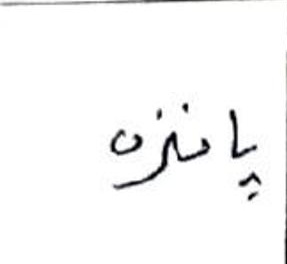 پانزده